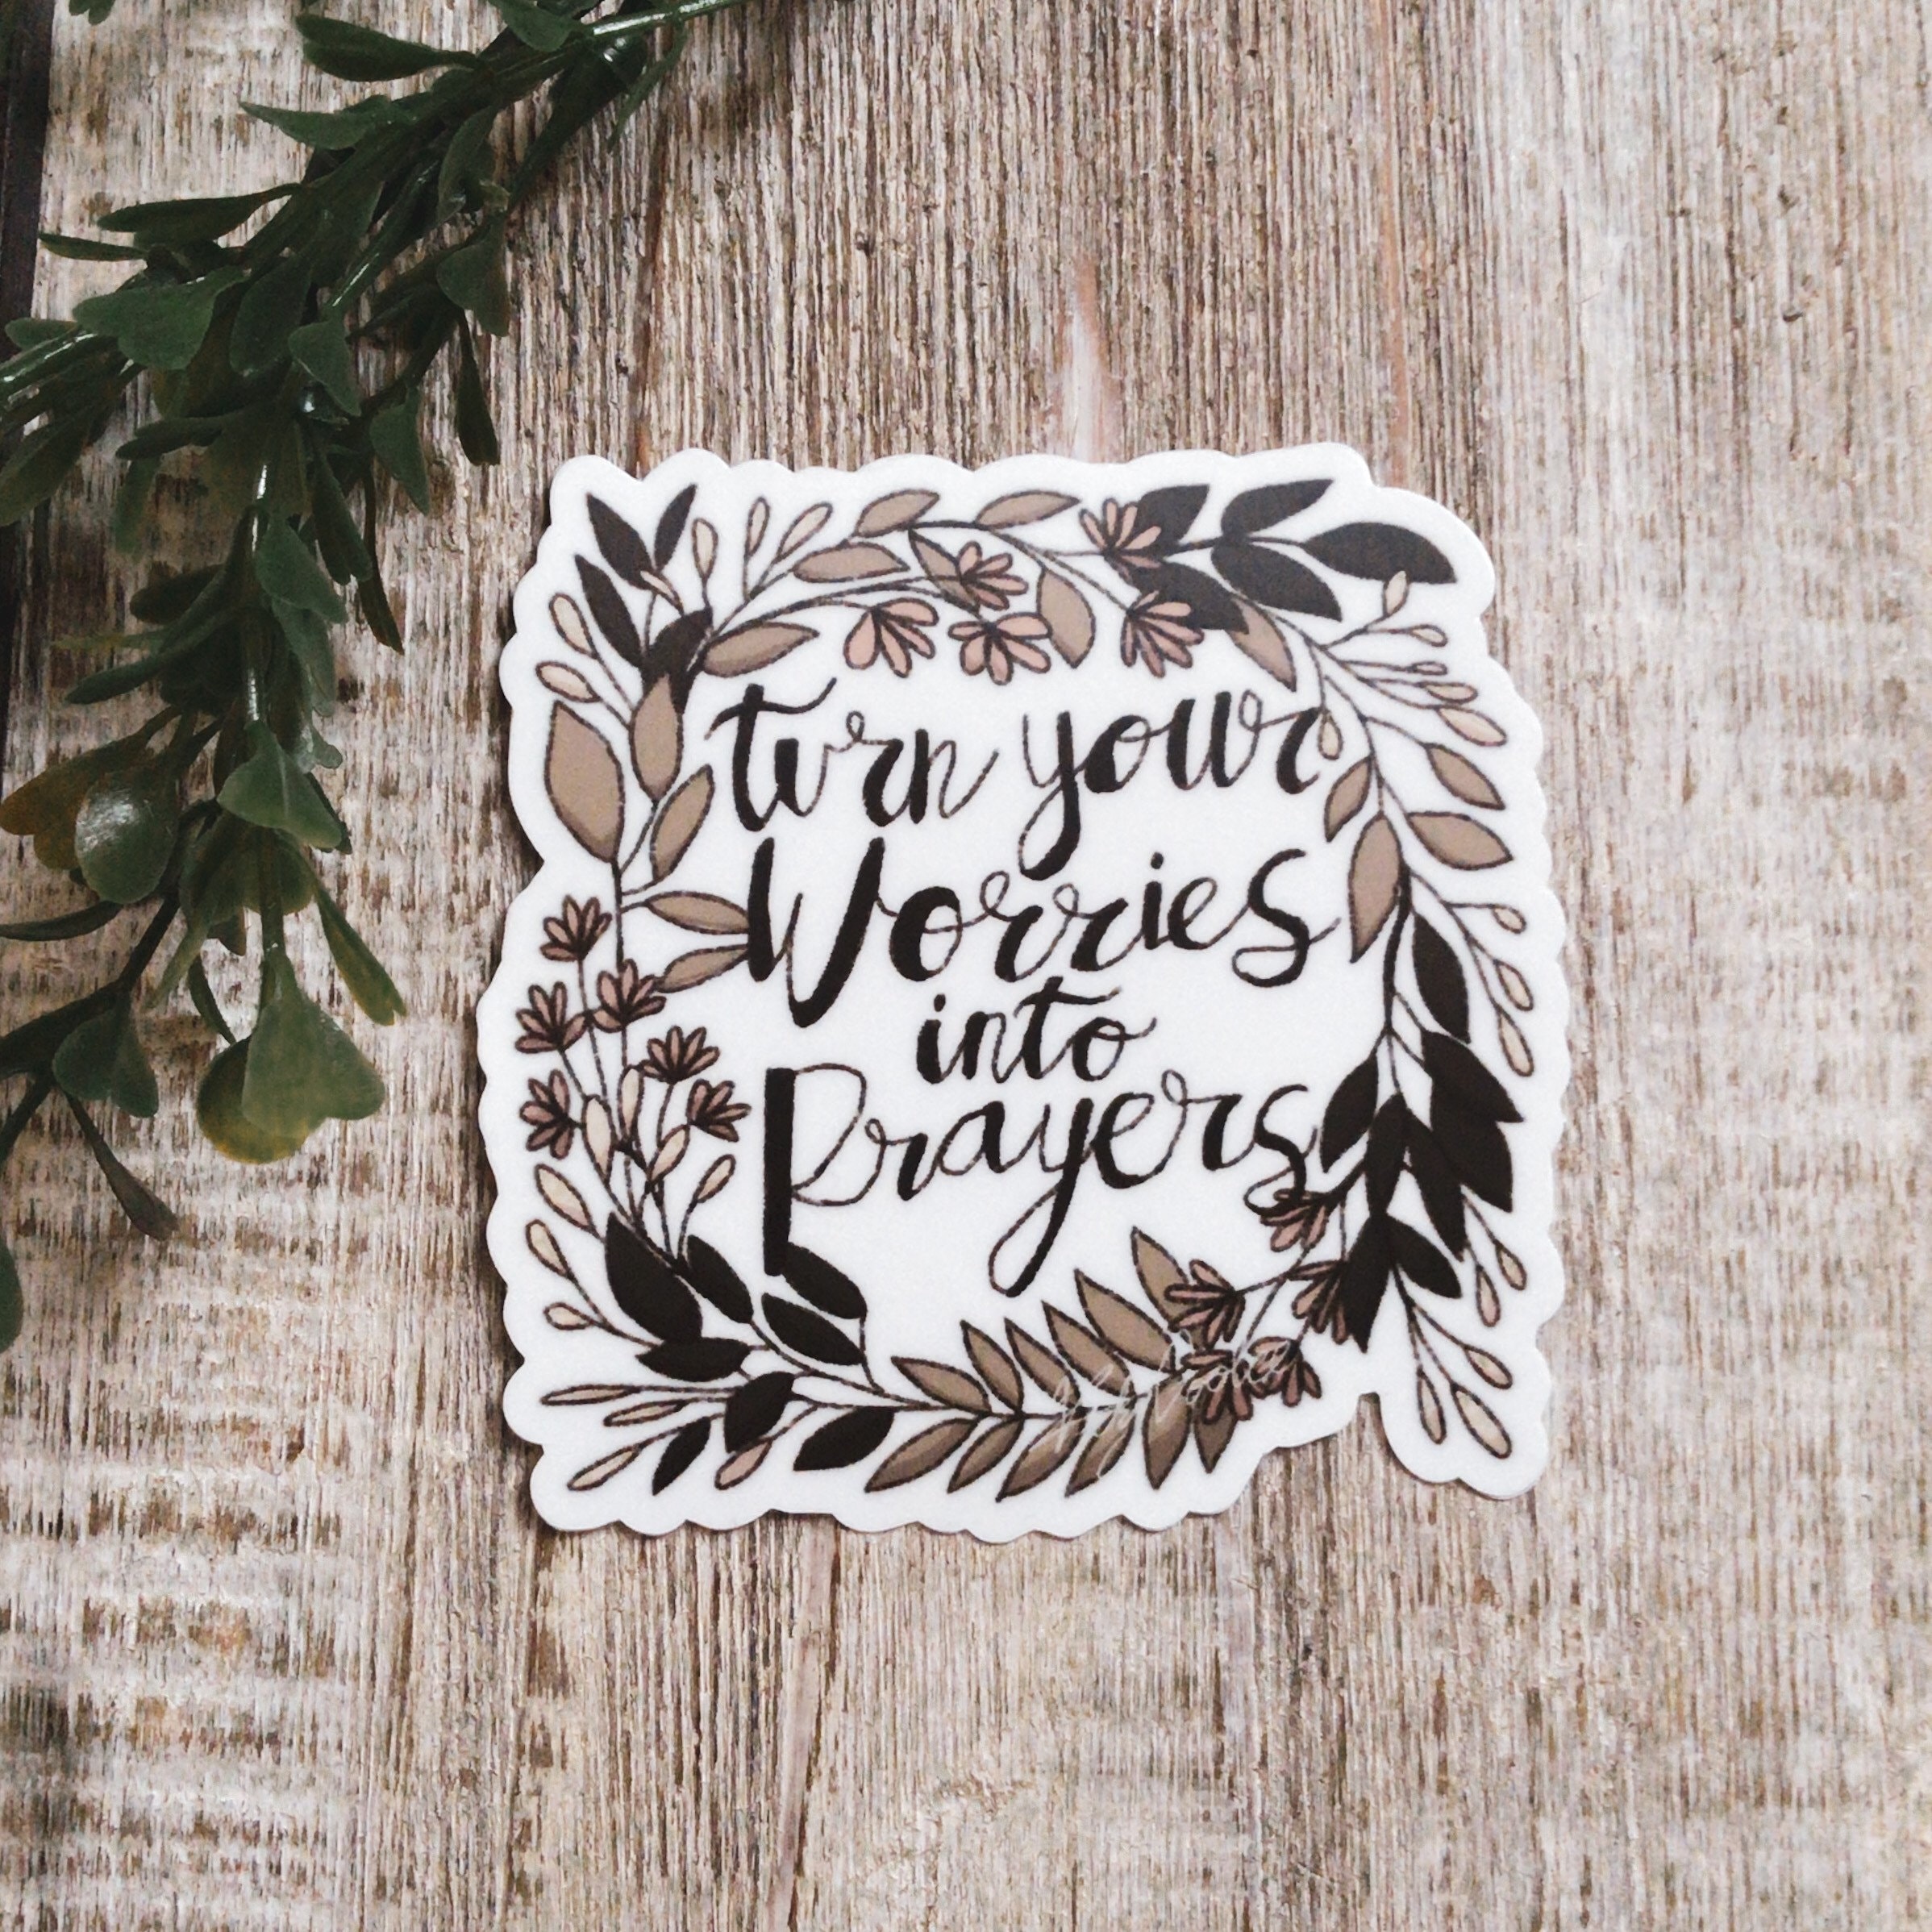 turn your
Worries
into
Prayers